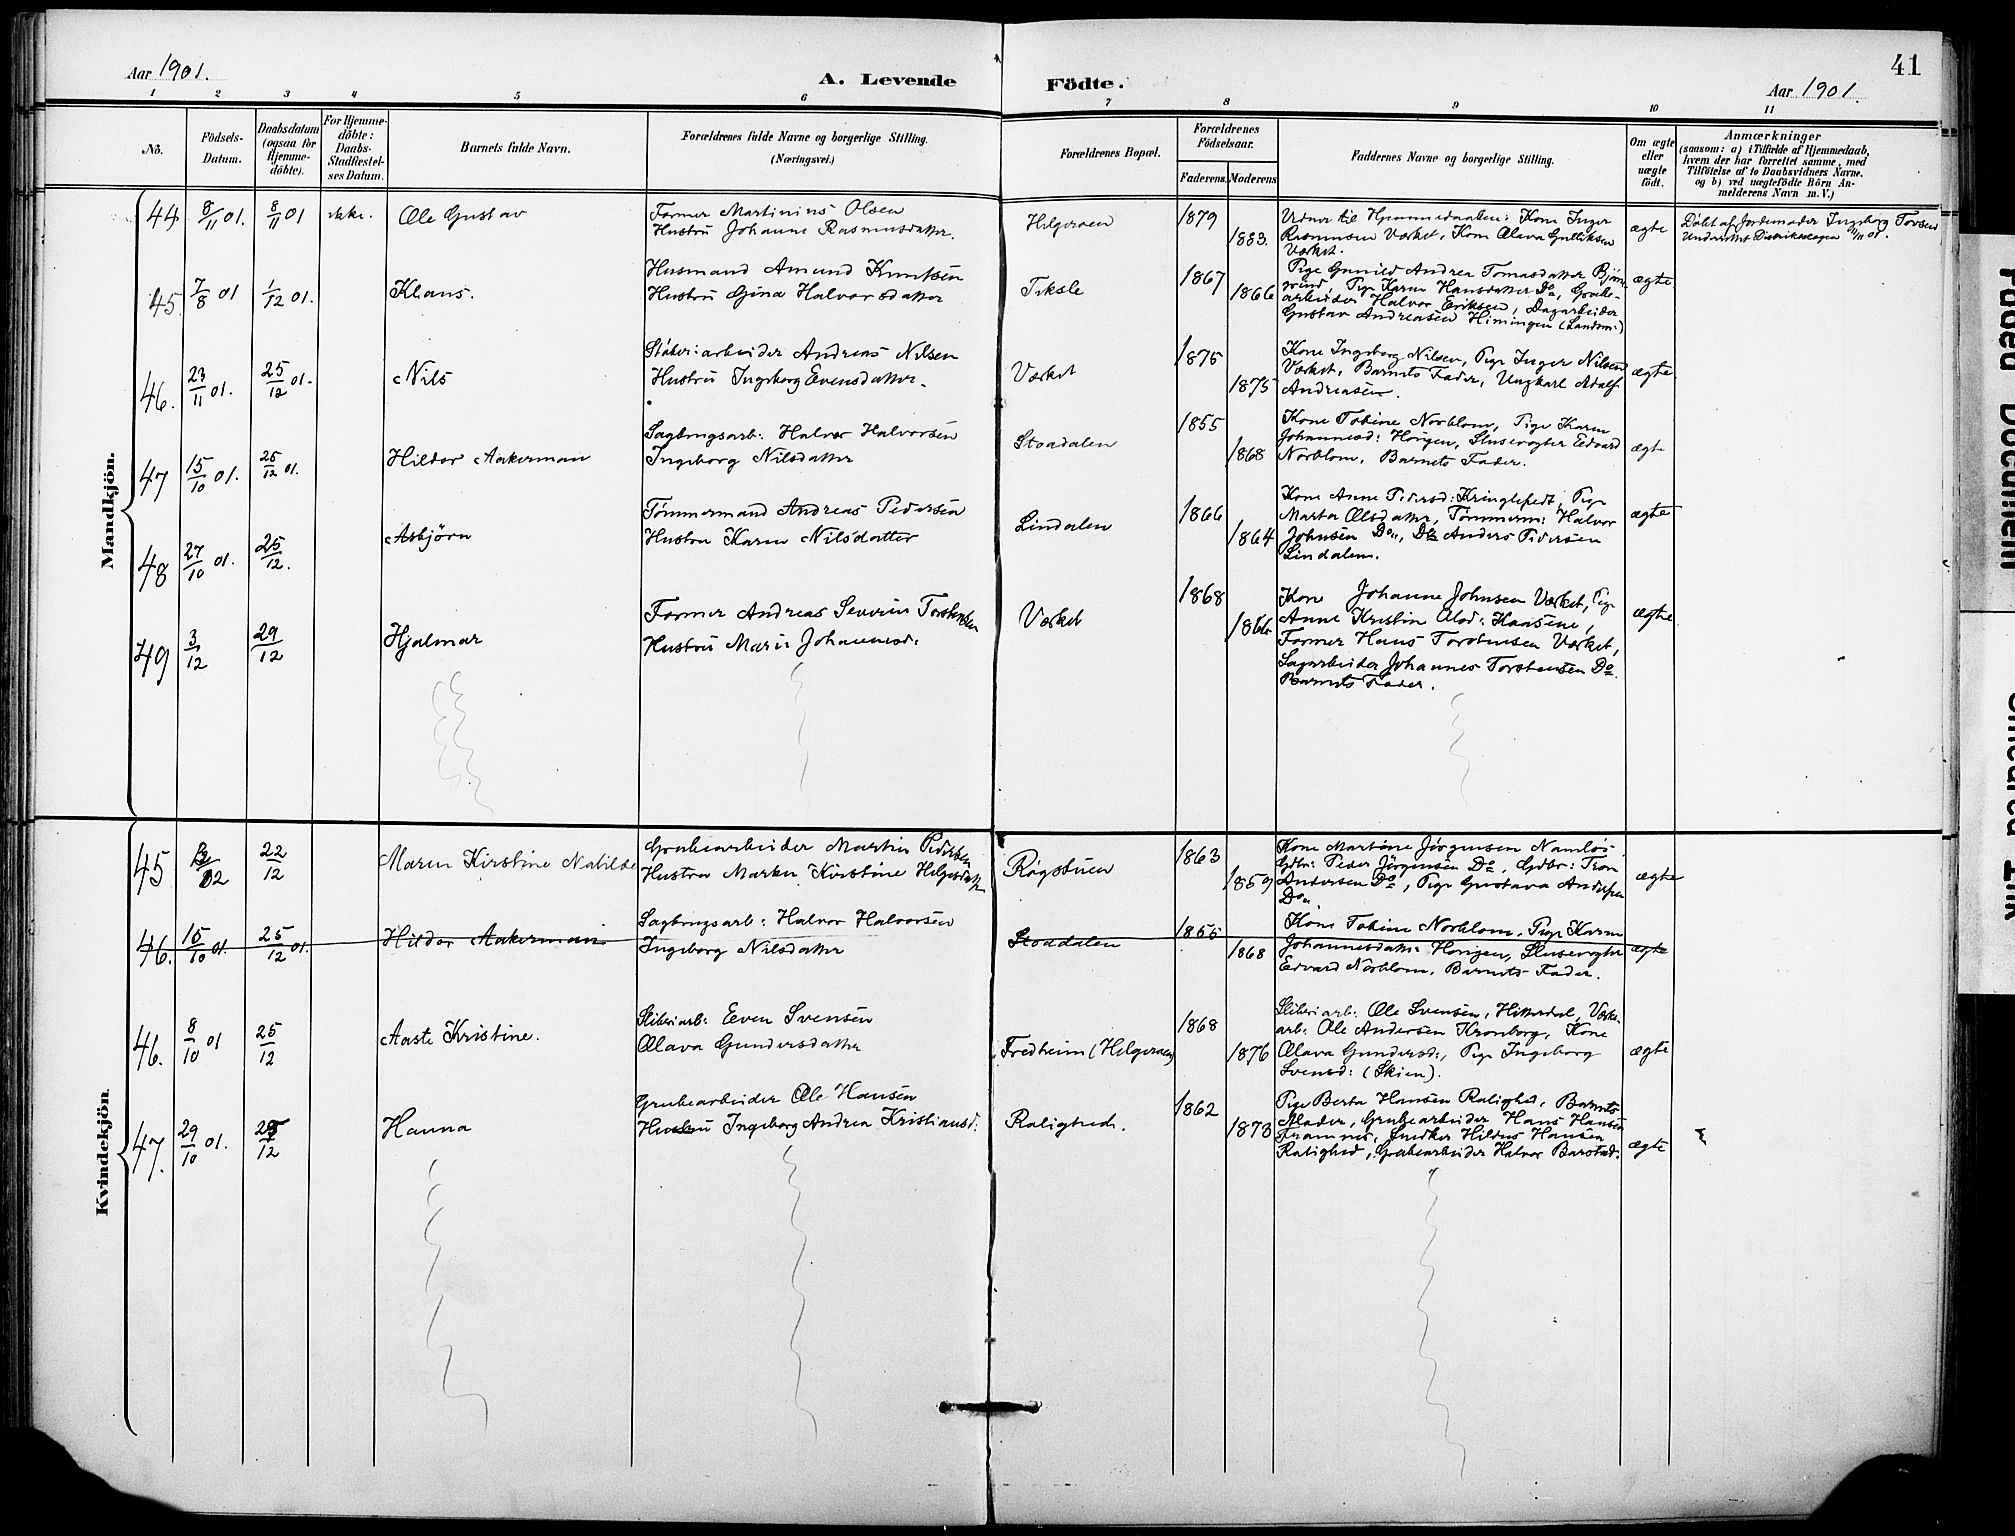 Aar 1901.
A. Levende Födte.
Aar 1901.
41
1 2 3 4 5 6 7 8 9 10 11
No.
Födsels-Datum.
Daabsdatum (ogsaa for Hjemme-döbte).
For Hjemme-döbte: Daabs-Stadfæstel-ses Datum.
Barnets fulde Navn.
Forældrenes fulde Navne og borgerlige Stilling.
(Næringsvei.)
Forældrenes Bopæl.
Forældrenes Födselsaar.
Faderens. Moderens.
Faddernes Navne og borgerlige Stilling.
Om ægte eller uægte födt.
Anmærkninger
(saasom: a) i Tilfælde af Hjemmedaab,
hvem der har forrettet samme, med
Tilföielse af to Daabsvidners Navne.
og b) ved uægtefödte Börn An-
melderens Navn m. V.)
Mandkjön.
44 8/11 01. 8/11 01 ikke. Ole Gustav
Former Martinius Olsen
Hustru Johanne Rasmusdatter.
Helgeroen 1879 1883.
Vidner til Hjemmedaaben: Kone Inger
Rasmussen Værket, Kone Olava Gulliksen
Værket.
ægte
Döbt af Jordemoder Ingeborg Tovsen
Undersket Distriktslægen 11/11 01.
45 7/8 01 1/12 01. Klaus.
Husmand Amund Knutsen
Hustru Gina Halvorsdatter
Teksle 1867 1866
Pige Gunild Andrea Tomasdatter Björn-
Pige Karen Hansdatter Do, Grube-
arbeider Halvor Eriksen, Dagarbeider
Gustav Andreasen Himingen (Landsm:)
ægte
46. 23/11 01. 25/12 01. Nils
Sliberiarbeider Andreas Nilsen
Hustru Ingeborg Evensdatter.
Værket 1875 1875
Kone Ingeborg Nilsen, Pige Inger Nilsen
Værket, Barnets Fader, Ungkarl Adolf
Andreasen.
ægte
47 15/10 01. 25/12 01. Hildor Aakerman
Sagbrugsarb: Halvor Halvorsen
Ingeborg Nilsdatter
Stoadalen 1855 1868
Kone Tobine Norblom, Pige Karen
Johannesd: Horgen, Slusevogter Edvard
Norblom, Barnets Fader.
ægte
48 27/10 01. 25/12. Asbjörn
Tömmermand Andreas Pedersen
Hustru Karen Nilsdatter
Lindalen 1866 1864
Kone Anne Pedersd: Kringlefedt, Pige
Marta Olsdatter, Tömmerm: Halvor
Johnsen Do, Do Anders Pedersen
Lindalen.
ægte
49 3/12 29/12 Hjalmar
Former Andreas Severin Torstensen
Hustru Marie Johannesd:
Værket 1868 1866
Kone Johanne Johnsen Værket, Pige
Anne Kristin Olsd: Kaasene,
Former Hans Torstensen Værket,
Sagarbeider Johannes Torstensen Do
Barnets Fader.
ægte
Kvindekjön
45 22/12 Maren Kirstine Matilde
Grubearbeider Martin Pedersen
Hustru Maren Kirstine Helgesdatter
Rögstuen 1863 1859
Kone Martine Jörgensen Namlös
Gdbr: Peder Jörgensen Do, Gdbr: Tron
Andersen Do, Pige Gustava Andersen
Do
ægte
46. 15/10 01. 25/12 01. Hildor Aakerman
Sagbrugsarb: Halvor Halvorsen
Ingeborg Nilsdatter
Stoadalen 1855 1868
Kone Tobine Norblom, Pige Karen
Johannesdatter Horgen, Slusevogter
Edvard Norblom, Barnets Fader.
ægte
46. 8/10 01 25/12 Aaste Kristine.
Sliberiarb: Even Svensen
Olava Gundersdatter
Fredheim (Helgeroen) 1868 1876
Sliberiarb: Ole Svensen, Hitterdal, Værks-
arb: Ole Andersen Kronborg, Kone
Olava Gundersd:, Pige Ingeborg
Svensd: (Skien).
ægte
47. 29/10 01. 25/12 Hanna
Grubearbeider Ole Hansen
Hustru Ingeborg Andrea Kristiansd.
Ralighed. 1862 1873
Pige Berta Hansen Ralighed, Barnets
Moder, Grubearbeider Hans Hansen
Framnes, Snedker Hildus Hansen
Ralighed, Grubearbeider Halvor Barstad.
ægte